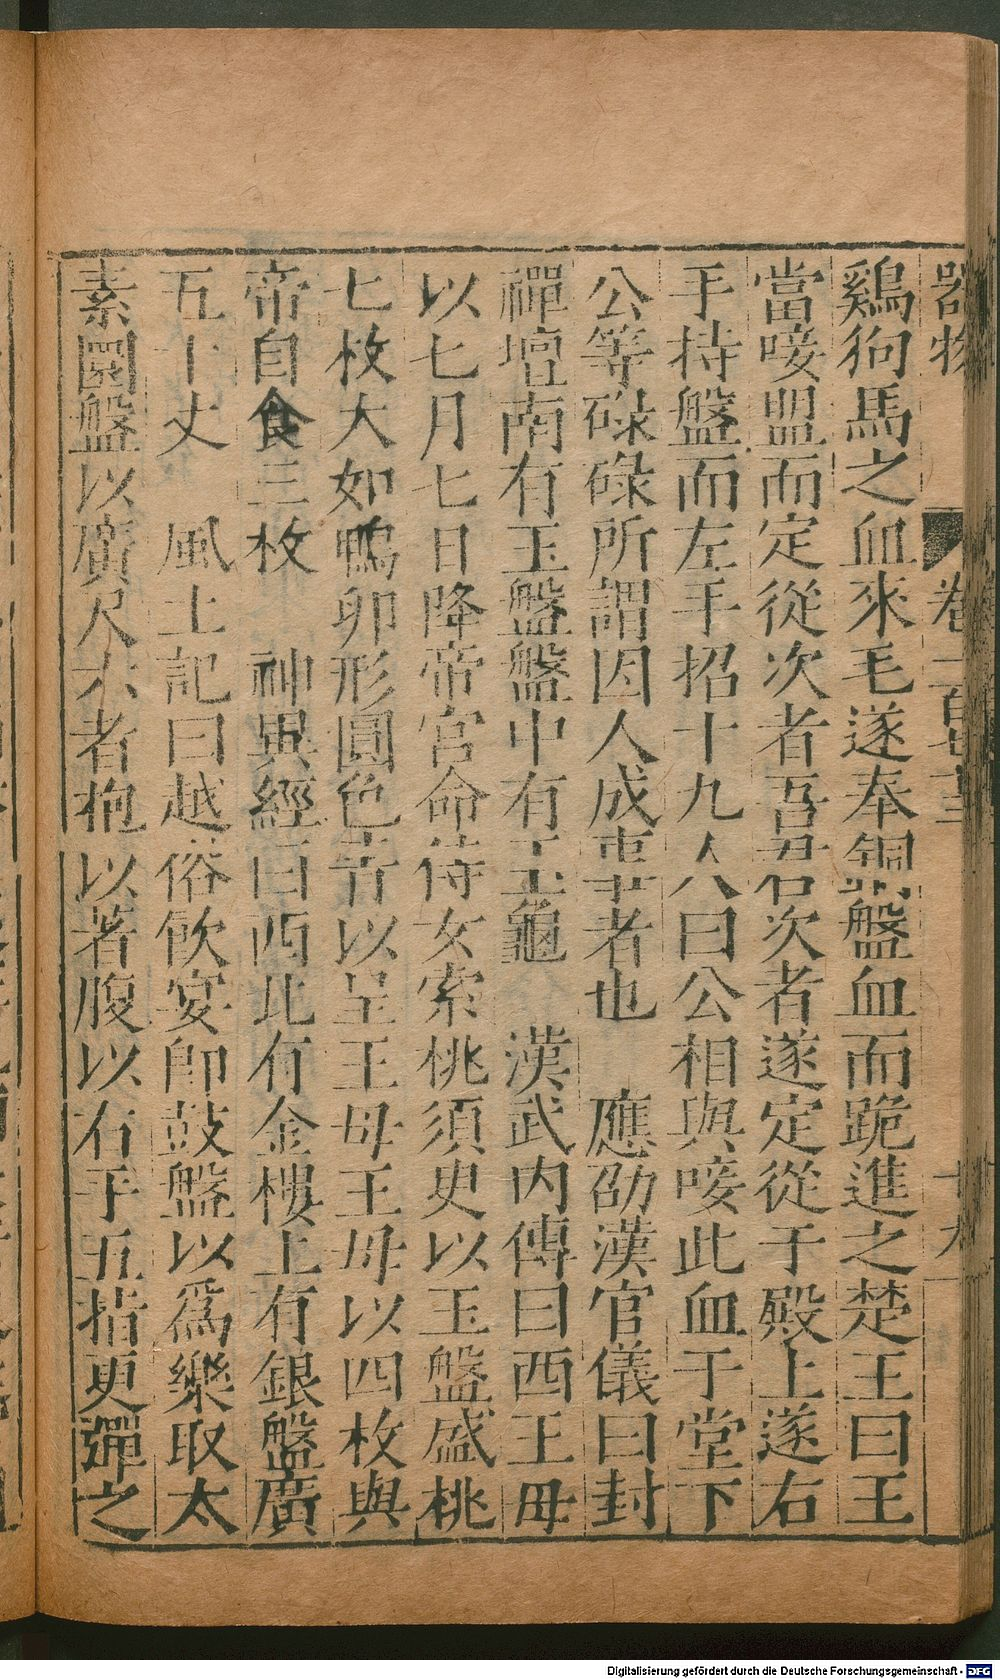 器物 卷一百七十三 十九
鷄狗馬之血來毛遂奉銅盤血而跪進之楚王曰王
當唼盟而定從次者吾君次者遂定從于殿上遂右
手持盤而左手招十九人曰公相與唼此血于堂下
公等碌碌所謂因人成事者也 應劭漢官儀曰封
禪壇南有玉盤盤中有玉龜 漢武内傳曰西王母
以七月七日降帝宮命侍女索桃須臾以玉盤盛桃
七枚大如鴨卵形圓色青以呈王母王母以四枚與
帝自食三枚 神異經曰西北有金樓上有銀盤廣
五十丈 風土記曰越俗飲宴即鼓盤以爲樂取太
素圜盤以廣尺六者抱以著腹以右手五指更彈之
Digitalisierung gefördert durch die Deutsche Forschungsgemeinschaft - DFG